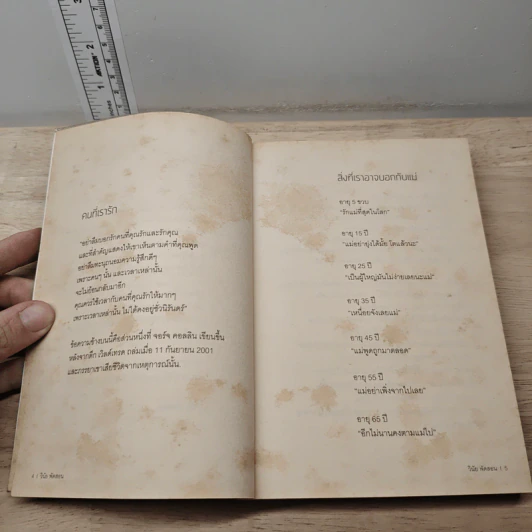 คนที่เรารัก
"อย่าลืมบอกรักคนที่คุณรักและรักคุณ
และที่สำคัญแสดงให้เขาเห็นตามคำที่คุณพูด
อย่าลืมทะนุถนอมความรู้สึกดีๆ
เพราะคนๆ นั้น และเวลาเหล่านั้น
จะไม่ย้อนกลับมาอีก
คุณควรใช้เวลากับคนที่คุณรักให้มากๆ
เพราะเวลาเหล่านั้น ไม่ได้คงอยู่ชั่วนิรันดร์"
ข้อความข้างบนนี้คือส่วนหนึ่งที่ จอร์จ คอลลิน เขียนขึ้น
หลังจากตึก เวิลด์เทรด ถล่มเมื่อ 11 กันยายน 2001
และภรรยาเขาเสียชีวิตจากเหตุการณ์นั้น
สิ่งที่เราอาจบอกกับแม่
อายุ 5 ขวบ
"รักแม่ที่สุดในโลก"
อายุ 15 ปี
"แม่อย่ายุ่งได้มั้ย โตแล้วนะ"
อายุ 25 ปี
"เป็นผู้ใหญ่มันไม่ง่ายเลยนะแม่"
อายุ 35 ปี
"เหนื่อยจังเลยแม่"
อายุ 45 ปี
"แม่พูดถูกมาตลอด"
อายุ 55 ปี
"แม่อย่าเพิ่งจากไปเลย"
อายุ 65 ปี
"อีกไม่นานคงตามแม่ไป"